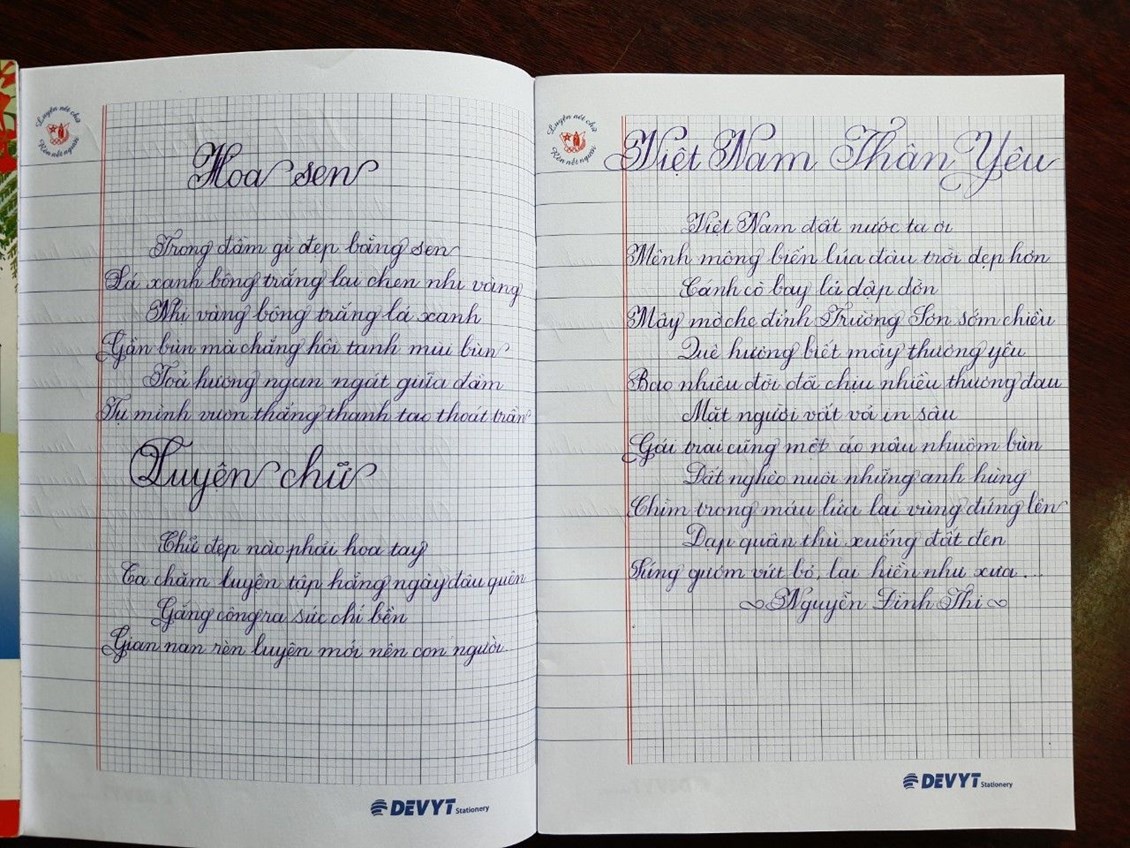 Luyện nét chữ
Rèn nết người
Hoa sen
Trong đầm gì đẹp bằng sen
Lá xanh bông trắng lại chen nhị vàng
Nhị vàng bông trắng lá xanh
Gần bùn mà chẳng hôi tanh mùi bùn
Toả hương ngan ngát giữa đầm
Tự mình vươn thẳng thanh tao thoát trần
Luyện chữ
Chữ đẹp nào phải hoa tay
Ta chăm luyện tập hằng ngày dám quên
Gắng công ra sức chí bền
Gian nan rèn luyện mới nên con người.
DEVYT Stationery
Luyện nét chữ
Rèn nết người
Việt Nam Thân Yêu
Việt Nam đất nước ta ơi
Mênh mông biển lúa đâu trời đẹp hơn
Cánh cò bay lả dập dờn
Mây mờ che đỉnh Trường Sơn sớm chiều
Quê hương biết mấy thương yêu
Bao nhiêu đời đã chịu nhiều thương đau
Mặt người vất vả in sâu
Gái trai cũng một áo nâu nhuộm bùn
Đất nghèo nuôi những anh hùng
Chìm trong máu lửa lại vùng đứng lên
Đạp quân thù xuống đất đen
Súng gươm vứt bỏ, lại hiền như xưa...
Nguyễn Đình Thi
DEVYT Stationery